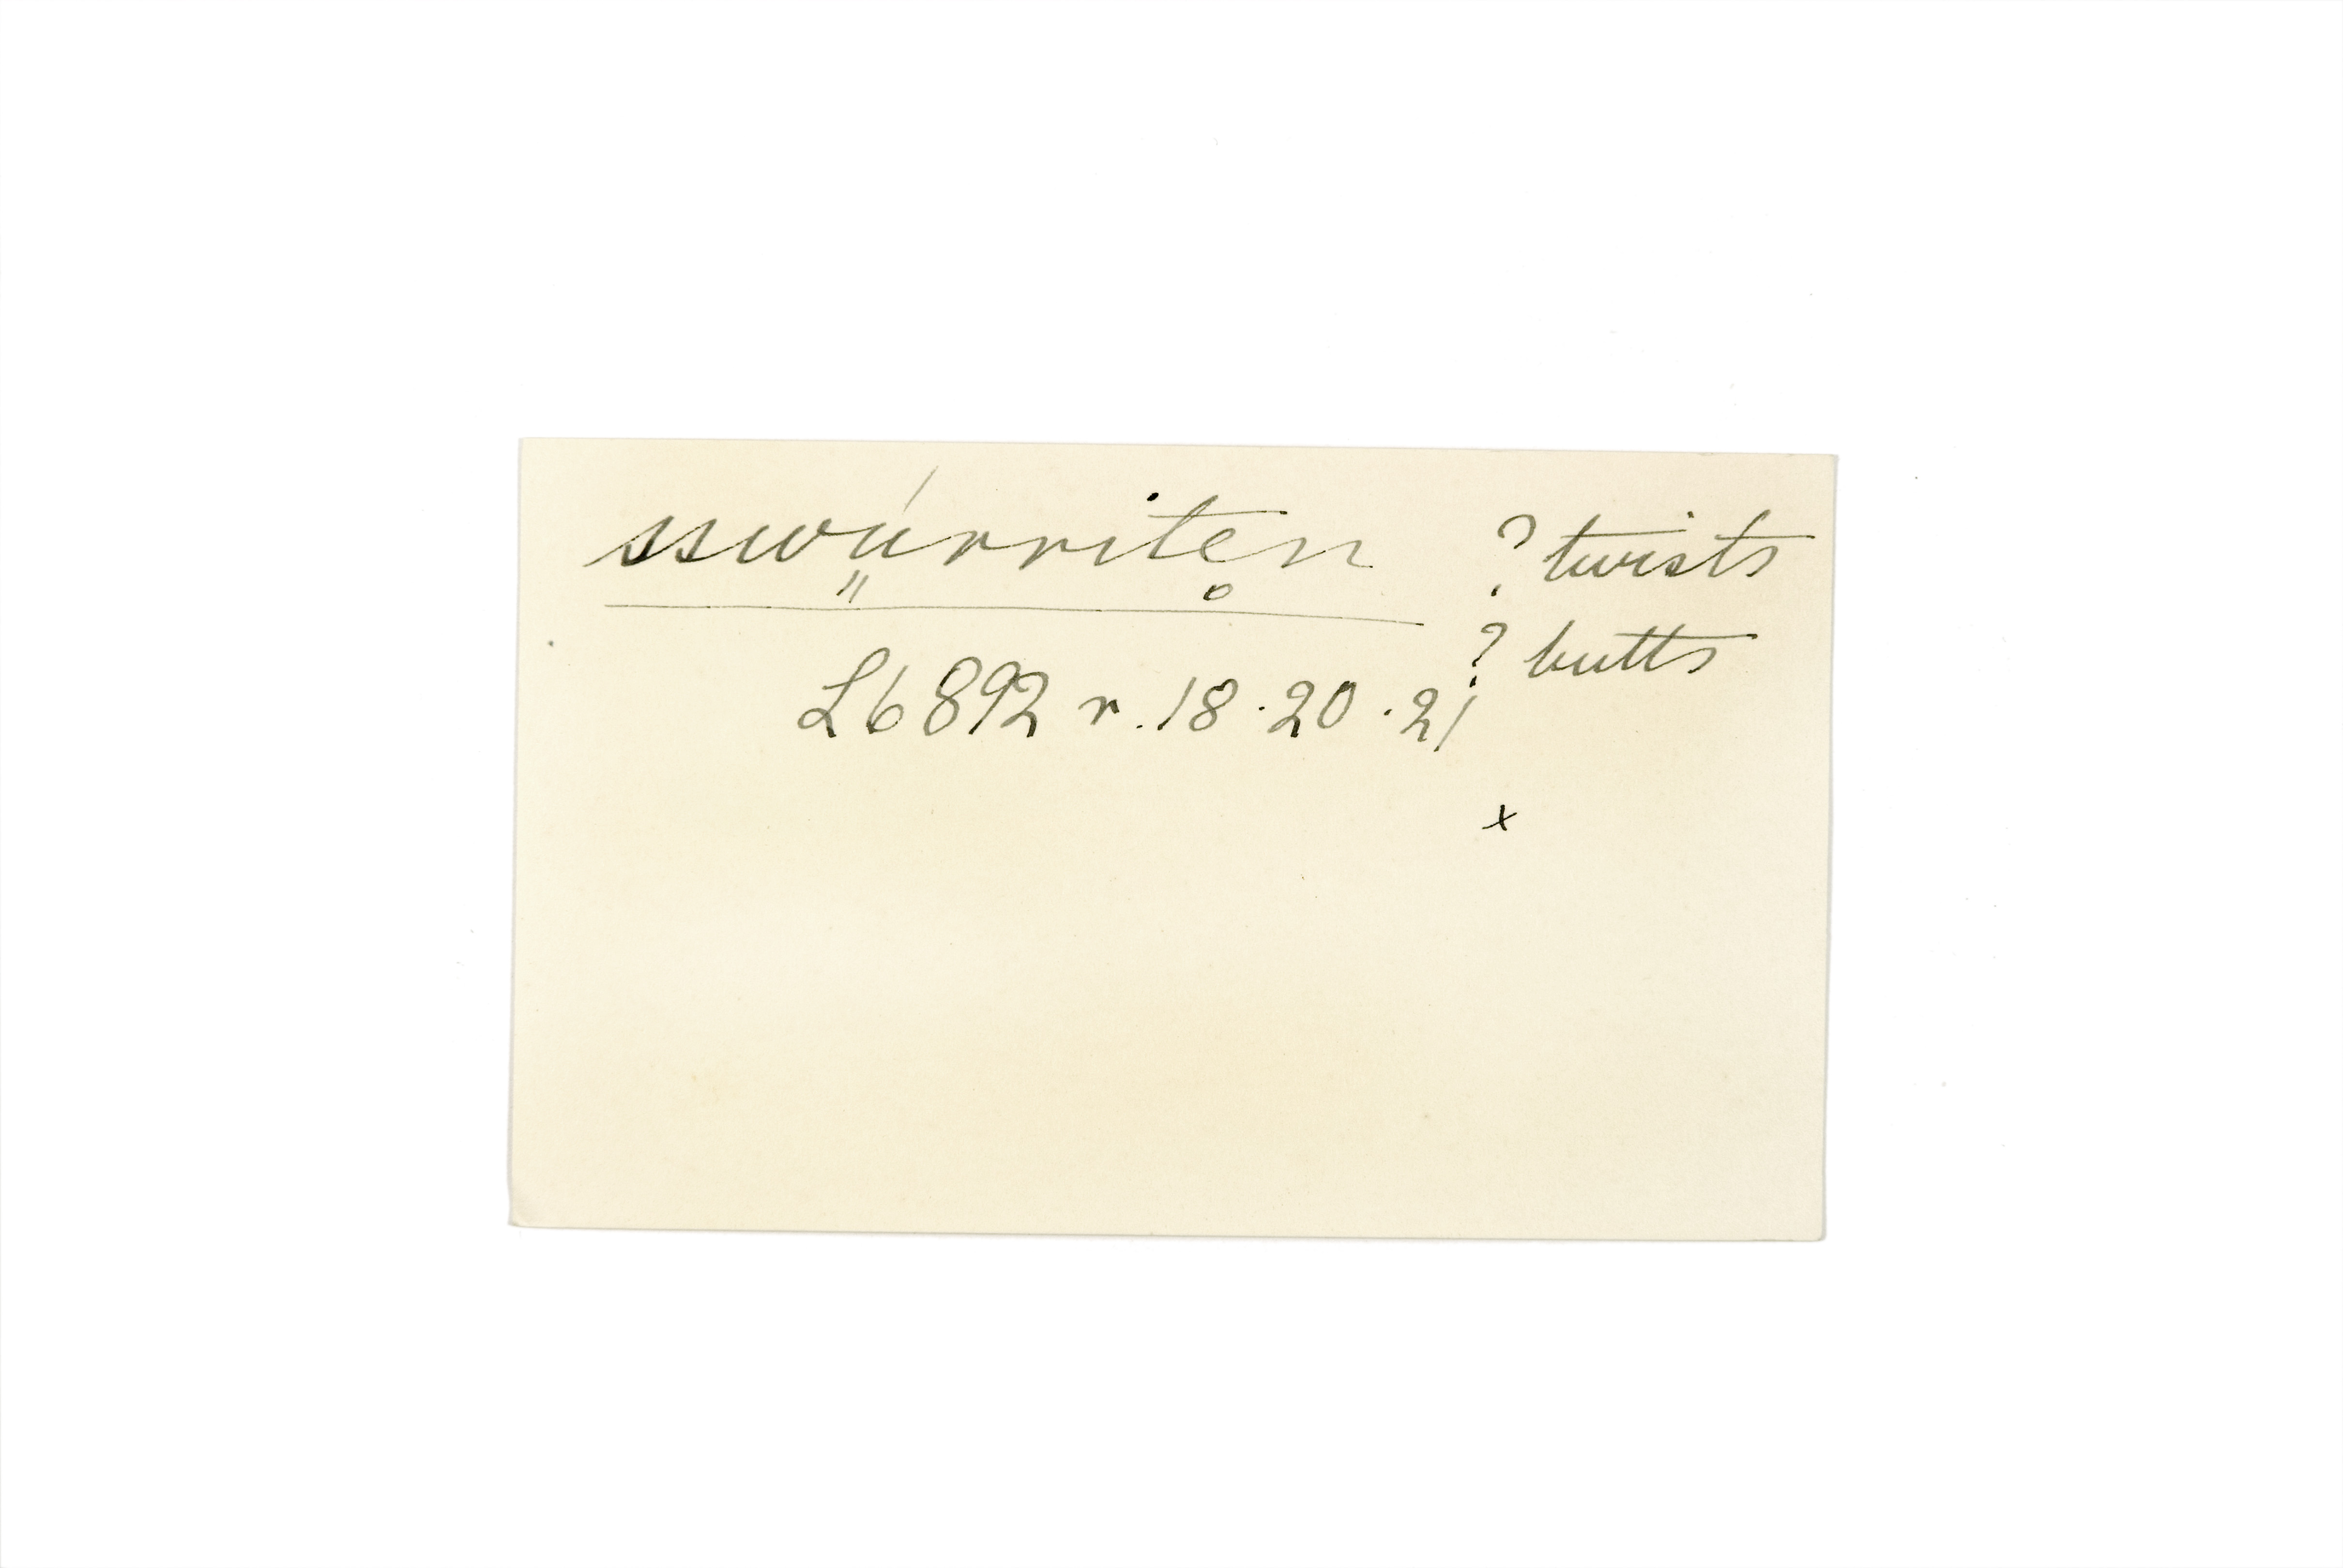 sswṳ́rrite̥n ? twists
? butts
L6892 r. 18·20·21
x